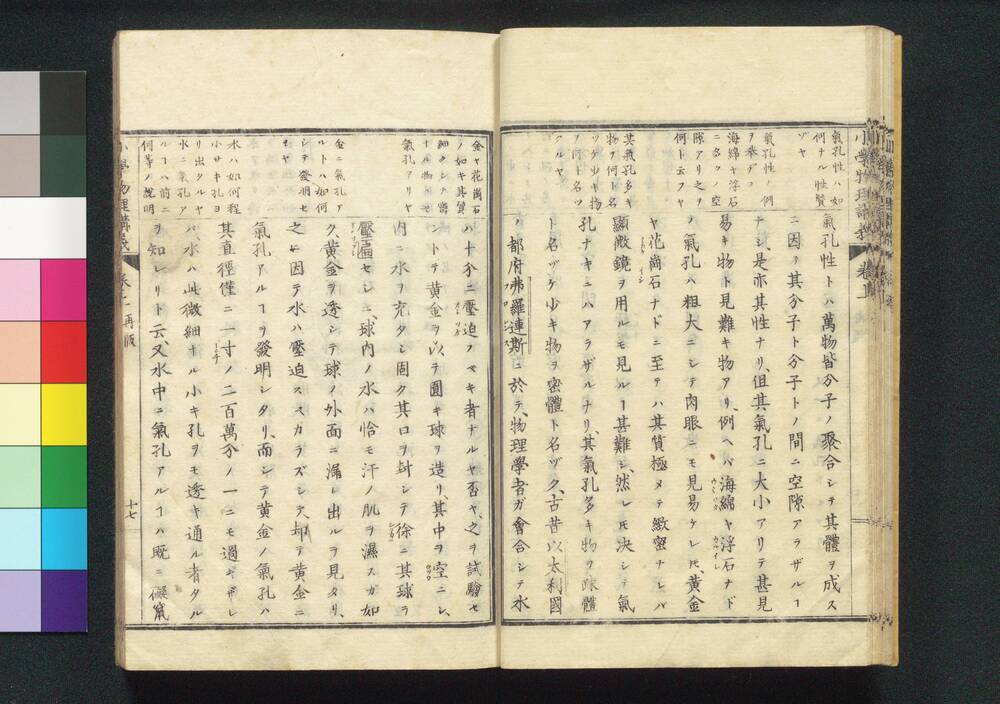 氣孔性ハ如
何ナル性質
ゾヤ
氣孔性ノ例
ヲ挙ゲヨ
海綿ヤ浮石
ニ名ツノ空
隙アリ之ヲ
何ト云フヤ
其氣孔多キ
物ヲ何ト名
ツケ少キ物
ヲ何ト名ツ
クルヤ
氣孔性トハ萬物皆分子ノ聚合シテ其體ヲ成ス
ニ因リ其分子ト分子トノ間ニ空隙アラザルヿ
ナシ、是亦其性ナリ、但其氣孔ニ大小アリテ甚見
易キ物ト見難キ物アリ、例ヘバ海綿ヤ浮石ナド
ノ氣孔ハ粗大ニシテ肉眼ニモ見易ケレ𪜈、黄金
ヤ花崗石ナドニ至テハ其質極メテ緻密ナレバ
顯微鏡ヲ用ルモ見ルヿ甚難シ、然レ𪜈決シテ氣
孔ナキニハアラザルナリ、其氣孔多キ物ヲ疎體
ト名ヅケ少キ物ヲ密體ト名ヅク、古昔以太利國
ノ都府弗羅連斯ニ於テ、物理學者ガ會合シテ水
金ヤ花崗石
ノ如キ其質
細クシテ密
ナル物ニモ
氣孔アリヤ
金ニ氣孔ア
ルトハ如何
シテ發明セ
シヤ
水ハ如何程
小サキ孔ヨ
リ出タルヤ
水ニ氣孔ア
ルヿハ前ニ
何等ノ說明
ハ十分ニ壓迫スベキ者ナルヤ否ヤ、之ヲ試驗セ
ントテ黄金ヲ以テ圓キ球ヲ造リ、其中ヲ空ニシ、
内ニ水ヲ充タシ周ク其口ヲ封シテ徐ニ其球ヲ
壓匾セシニ、球内ノ水ハ恰モ汗ノ肌ヲ濕スガ如
ク、黄金ヲ透シテ球ノ外面ニ漏レ出ルヲ見タリ、
之ニ因テ水ハ壓迫ススカラズシテ、却テ黄金ニ
氣孔アルヿヲ發明シタリ、而シテ黄金ノ氣孔ハ
其直徑僅ニ一寸ノ二百萬分ノ一ニモ過ギザレ
バ水ハ此微細ナル小キ孔ヲモ透キ通ル者タル
ヲ知レリト云、又水中ニ氣孔アルヿハ既ニ礙
小學物理講義
卷上
再版
十七